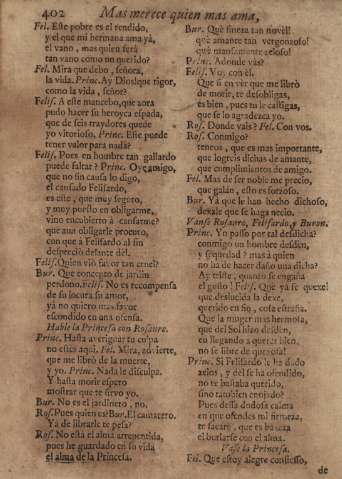 402 Mas merece quien mas ama,
Fel. Este pobre es el rendido,
y el que mi hermana ama ya,
el vano, mas quien ferá
tan vano como un querido?
Felis. Mira que debo, señora,
la vida. Princ. Ay Dios! que rigor,
como la vida, señor?
Felis. A este mancebo, que aora
pudo hacer su heroyca espada,
que de seis traydores quede
yo vitorioso. Princ. Este puede
tener valor para nada?
Felis. Pues en hombre tan gallardo
puede faltar? Princ. Oye, amigo,
que no sin causa lo digo,
el cansado Felisardo,
es este, que muy seguro,
y muy puesto en obligarme,
vino encubierto à cansarme?
que aun obligarle procuro,
con que à Felisardo al fin
desprecio delante dèl.
Felis. Quien viò favor tan cruel?
Bur. Que concepto de jardin
perdono. Felis. No es recompensa
de su locura su amor,
yà no quiero mas favor
escondido en una ofensa.
Hable la Princesa con Rosauro.
Princ. Hasta averiguar tu culpa
no estès aqui. Fel. Mira, advierte,
que me librò de la muerte,
y yo. Princ. Nada le disculpa.
Y hasta morir espero
mostrar que te sirvo yo.
Bur. No es el jardinero, no.
Ros. Pues quien es? Bur. El cantarero.
Yà de librarle te pesa?
Ros. No està el alma arrepentida,
pues he guardado en su vida
el alma de la Princesa.
Bur. Què fineza tan novèl!
què amante tan vergonzoso!
què mansamente zeloso!
Princ. Adonde vais?
Felis. Voy con èl.
Que si en ver que me librò
de morir, te desobligas,
es bien, pues tu le castigas,
que se lo agradezca yo.
Ros. Donde vais? Fel. Con vos.
Ros. Conmigo?
teneos, que es mas importante,
que logreis dichas de amante,
que cumplimientos de amigo.
Fel. Mas de ser noble me precio,
que galàn, esto es forzoso.
Bur. Yà que le han hecho dichoso,
dexale que se haga necio.
Vanse Rosauro, Felisardo, y Buron.
Princ. Yo passo por tal desdicha?
conmigo un hombre desdèn,
y sequedad? mas à quien
no ha de hacer daño una dicha?
Ay triste, quanto se engaña
el gusto! Felis. Què yà se quexe!
que desluzida la dexe,
querido en fin, cosa estraña.
Que la muger mas hermosa,
que del Sol hizo desdèn,
en llegando à querer bien,
no se libre de quexosa!
Princ. Si Felisardo le ha dado
zelos, y dèl se ha ofendido,
no te bastaba querido,
sino tambien enojado?
Pues dessa dudosa calma
en que ofendes mi firmeza,
te sacarè, que es baxeza
el burlarse con el alma.
Vase la Princesa.
Fel. Que estoy alegre confiesso,
de